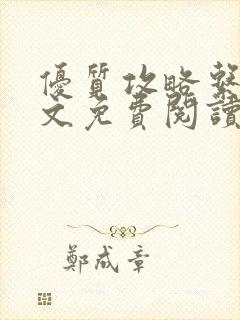 優質攻略繫
文免費閱讀
鄭成章